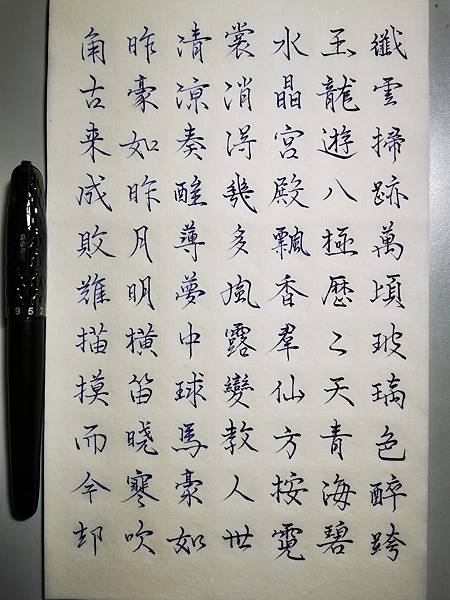 纖雲掃跡萬頃玻璃色醉跨
玉龍遊八極歷〻天青海碧
水晶宮殿飄香群仙方按霓
裳消得幾多風露變教人世
清凉奏夢中球馬豪如
昨豪如昨月明橫笛曉寒吹
角古来成敗難描摸而今却
952